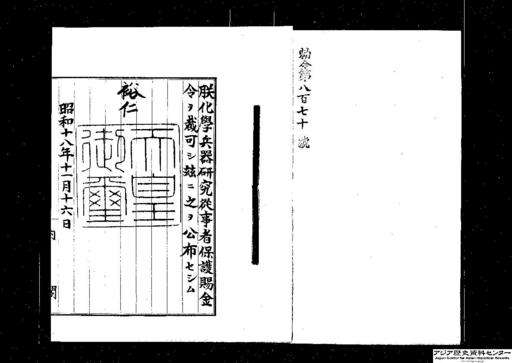 勅令第八百七十號
朕化學兵器研究從事者保護賜金
令ヲ裁可シ玆ニ之ヲ公布セシム
裕仁
天皇
御璽
昭和十八年十一月十六日
内
閣
アジア歴史資料センター
Japan Center for Asian Historical Records